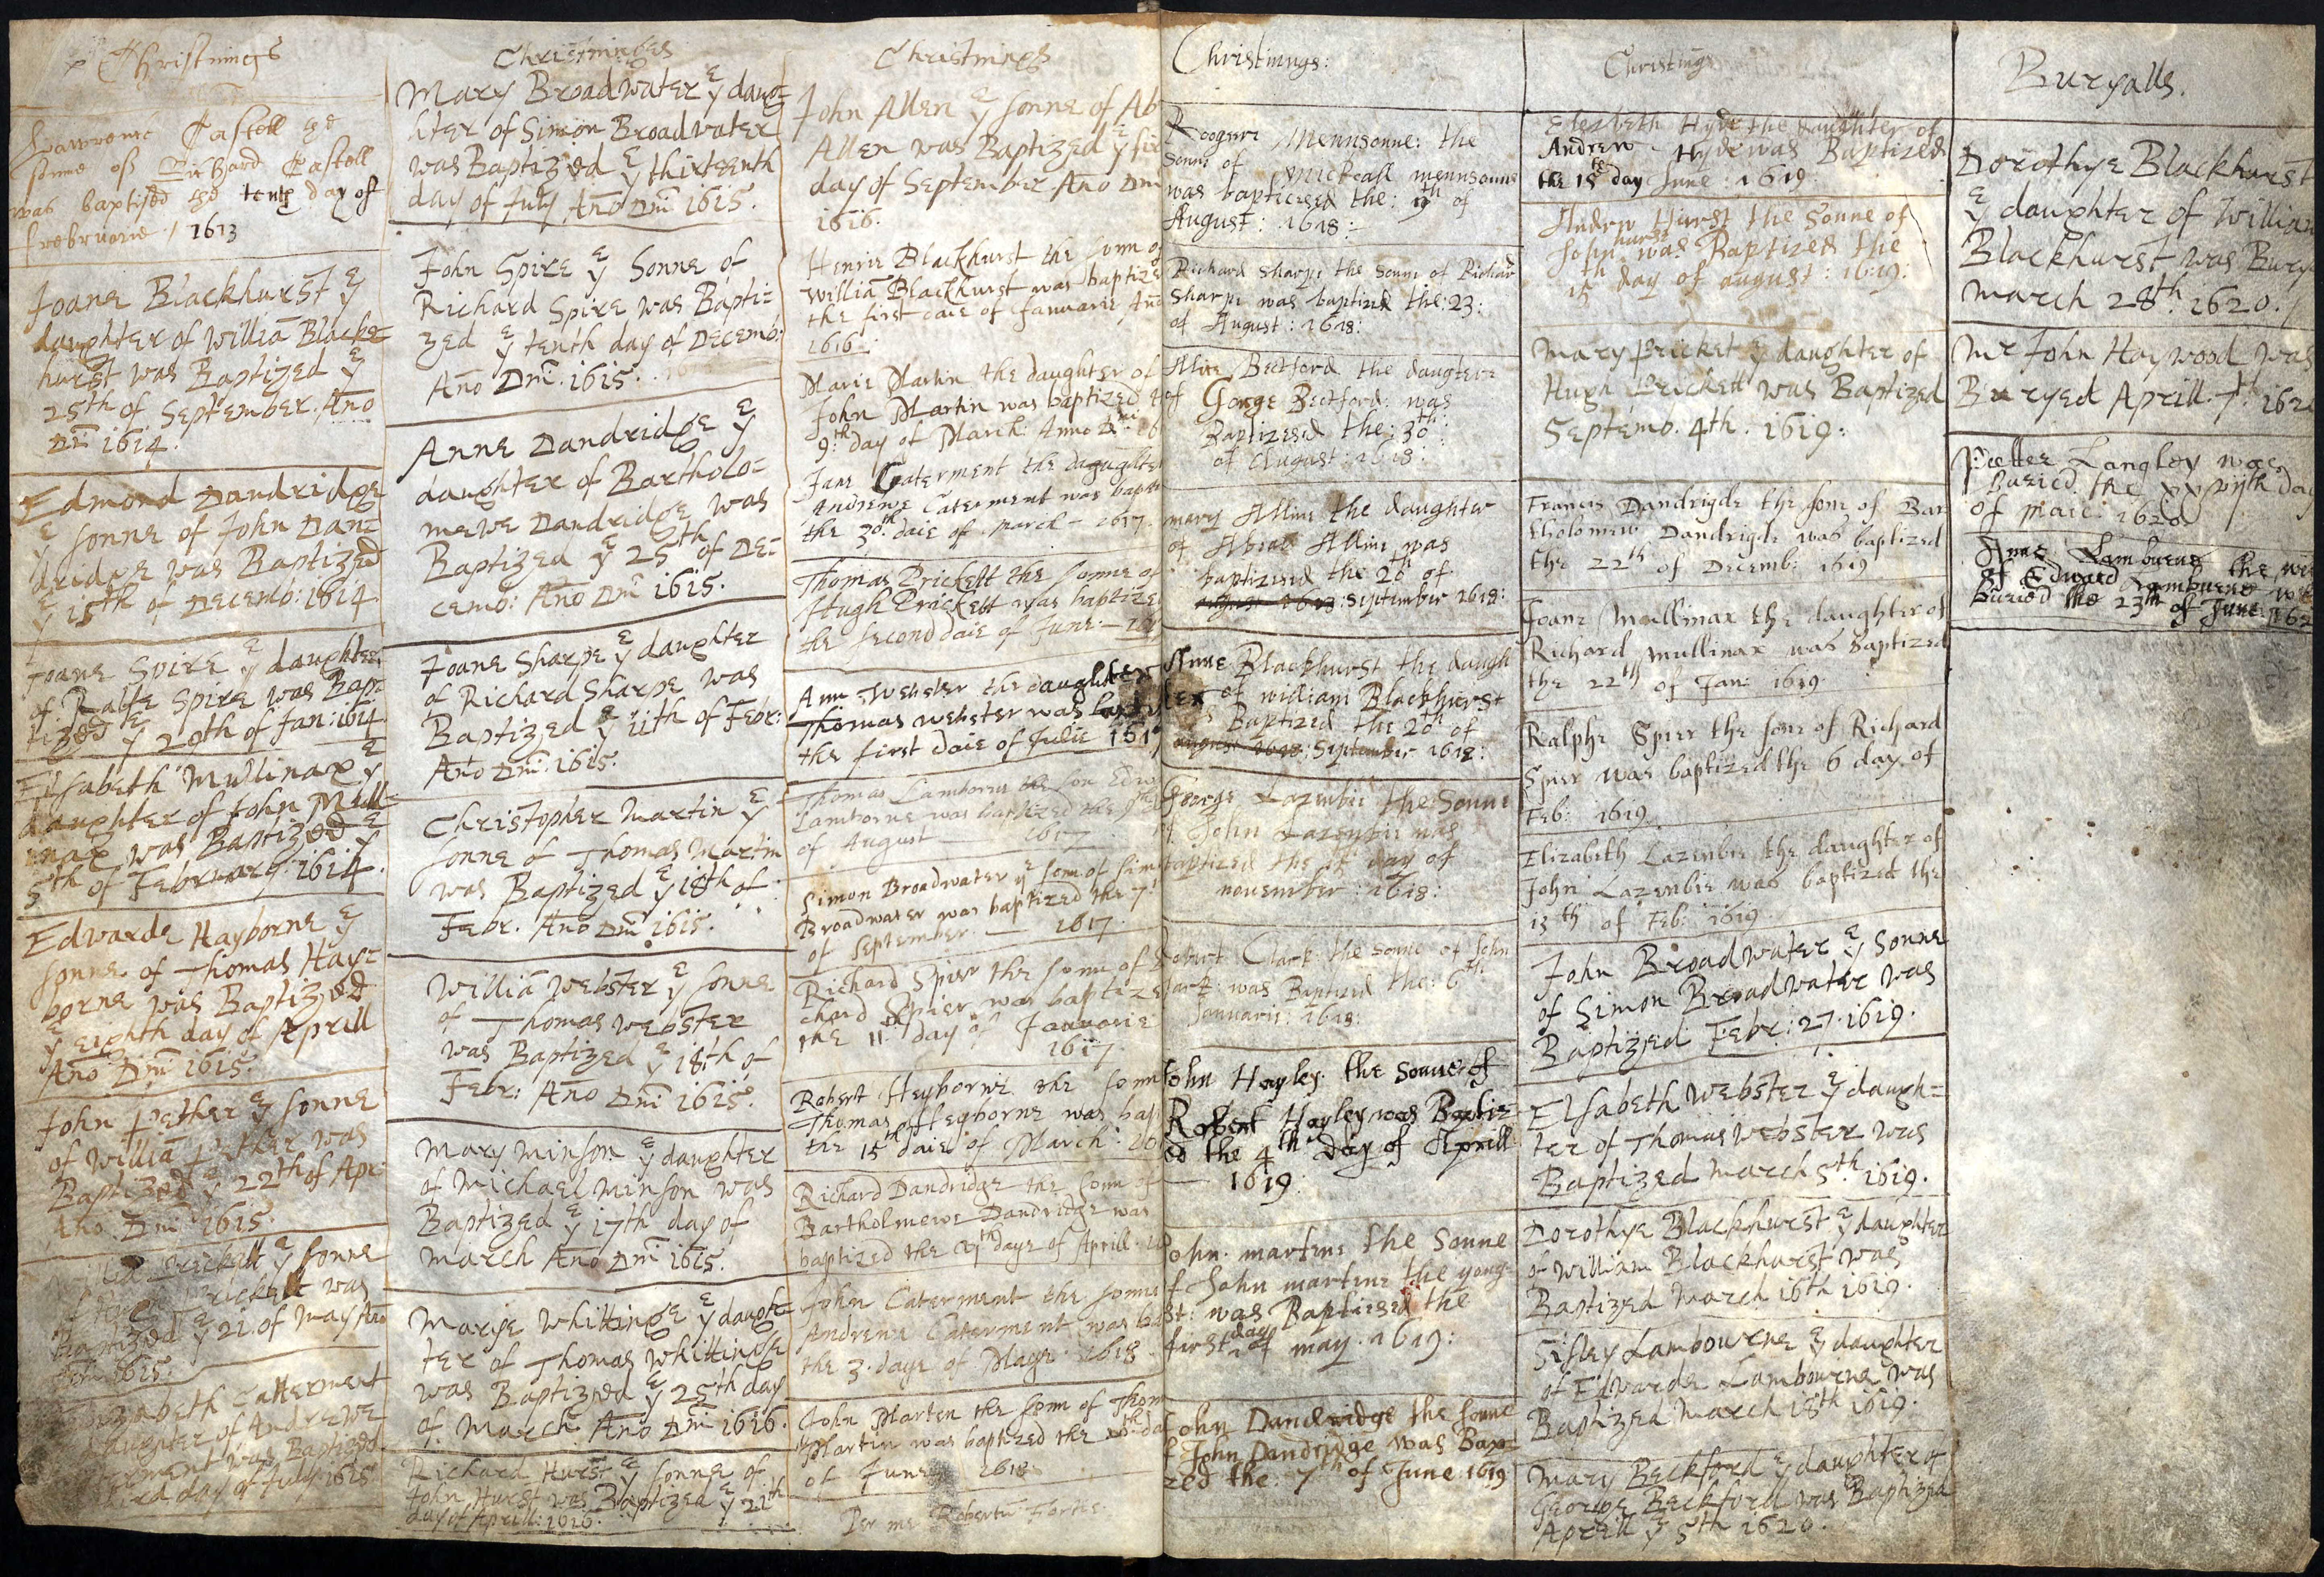 Christnings
Lawrence Castell the
sonne of Richard Castell
was baptised the tenth day of
februarie / 1613
Joane Blackhurst ye
daughter of Williā Blacke=
hurst was Baptized ye
25th of September. Año
Dm̄ 1614.
Edmond Dandridge
ye sonne of John Dan=
dridge was Baptized
ye 18th of Decemb: 1614
Joane Spire ye daughter
of Rafe Spire was Bap=
tized ye 29th of Jan: 1614
Elsabeth Mullinax ye
daughter of John Mull=
inax was Baptized ye
5th of February. 1614.
Edwarde Hayborne ye
sonne of Thomas Hay=
borne was Baptized
ye eighth day of Aprill
Año Dm̄ 1615.
John Pether ye sonne
of Williā Pether was
Baptized ye 22th of Apr:
Año Dm̄ 1615.
Prickett ye sonne
of Prickett was
Baptized ye 21. of May Año
Dm̄ 1615.
Elizabeth Catterment
daughter of Andrewe
Caterment was Baptized
third day of July 1615
Christninges
Mary Broadwater ye daug=
hter of Simon Broadwater
was Baptized ye thirteenth
day of July Año Dm̄ 1615.
John Spire ye Sonne of
Richard Spire was Bapti=
zed ye tenth day of Decemb:
Año Dm̄. 1615.
Anne Dandridge ye
daughter of Bartholo=
mewe Dandridge was
Baptized ye 25th of De=
cemb: Año Dm̄ 1615.
Joane Sharpe ye daughter
of Richard Sharpe was
Baptized ye 11th of Febr:
Año Dm̄: 1615.
Christopher Martin ye
sonne of Thomas Martin
was Baptized ye 18th of
Febr. Año Dm̄ 1615.
Williā Webster ye sonne
of Thomas Webster
was Baptized ye 18th of
Febr: Año Dm̄ 1615.
Mary Minson ye daughter
of Michael Minson was
Baptized ye 17th day of
March Año Dm̄ 1615.
Marye Whittinge ye daugh=
ter of Thomas Whittinge
was Baptized ye 25th day
of March Año Dm̄ 1616.
Richard Hurst ye sonne of
John Hurst was Baptized ye 21th
day of Aprill: 1616.
Christnings
John Allen ye sonne of Ab
Allen was Baptized ye fir
day of September Año Dm
1616.
Henrie Blackhurst the sonn of
Williā Blackhurst was baptize
the first daie of Januarie Año
1616
Marie Martin the daughter of
John Martin was baptized
9th day of March: Anno Dni
Jane Caterment the daughter
Andrewe Caterment was bapti
the 30th daie of March - 1617.
Thomas Prickett the sonne of
Hugh Prickett was baptize
the second daie of June
Ann Webster the daughter
Thomas Webster was bapt
the first daie of Julie 1617
Thomas Lamborne the son Edw
Lamborne was baptized the
of August 1617
Simon Broadwater ye sonn of Sim
Broadwater was baptized the 7th
of September — 1617.
Richard Spier the sonn of
chard Spier was baptize
the 11th day of Januarie
1617.
Robert Heyborne the sonn
Thomas Hegborne was bap
the 15th daie of March:
Richard Dandridge the sonn of
Bartholmewe Dandridge was
baptized the daye of Aprill
John Caterment the sonne
Andrewe Caterment was ba
the 3. daye of Maye 1618
John Marten the sonn of Thom
Martin was baptized the da
of June 1618
Per me Robertu Forster
Christnings:
Roogeer Mennsonne: the
Sonne of Mickeall mennsonne
was baptiesed the: 9th of
August: 1618:
Richard Sharpe the Sonne of Richar
Sharpe was baptized the: 23:
of August: 1618:
Alice Bectford the daugter
of George Bectford: was
Baptizesed the: 30th:
of August: 1618:
mary Alline the daughter
of Abraā Alline was
baptizesed the 20th of
august 1618: September 1618:
Anne Blackhurst the daugh
ter of William Blackhurst
was Baptized the 20th of
august 1618: September 1618:
George Lazenbie the Sonne
of John Lazenbie was
baptized the 1st day of
november: 1618:
Robert Clark the sonne of John
Clark: was Baptized the: 6th
Januarie: 1618:
John Hayley: the Sonne of
Robert Hayley was Baptiz
ed the 4th day of Aprill
— 1619:
John martine the Sonne
of John martine the yong
st: was Baptiesed the
first day of may. 1619:
John Dandridge the sonne
of John Dandridge was Bap=
zed the: 7th of June: 1619
Christnings
Elezbeth Hyde the daughter of
Andrew Hyde was Baptized
the 15 day June: 1619:
Andrew Hurst the Sonne of
John hurst was Baptized the
15th day of august: 1619:
Mary Pricket ye daughter of
Hugh Prickett was Baptized
Septemb. 4th. 1619:
Francis Dandrigde the sone of Bar
tholomew Dandrigde was baptized
the 22th of Decemb: 1619
Joane Mullinax the daughter of
Richard Mullinax was Baptized
the 22th of Jan: 1619.
Ralphe Spier the sone of Richard
Spier was baptized the 6 day of
Feb: 1619
Elizabeth Lazenbie the daughter of
John Lazenbie was baptized the
13th of Feb: 1619
John Broadwater ye Sonne
of Simon Broadwater was
Baptized Febr: 27. 1619.
Elsabeth Webster ye daugh=
ter of Thomas Webster was
Baptized March 5th. 1619.
Dorothye Blackhurst ye daughter
of William Blackhurst was
Baptized March 16th 1619.
Sisley Lambourne ye daughter
of Edwarde Lambourne was
Baptized March 18th 1619.
Mary Beckford ye daughter of
George Beckford was Baptized
Aprill ye 5th 1620.
Buryalls.
Dorothye Blackhurst
ye daughter of William
Blackhurst was Bury
March 28th. 1620.
Mr John Haywood was
Buryed Aprill. 7th. 162
Peetter Langley was
Buried the day
of Maie: 1620
Anne Lamburne the wi
of Edward Lamburne w
buried the 23th of June: 162